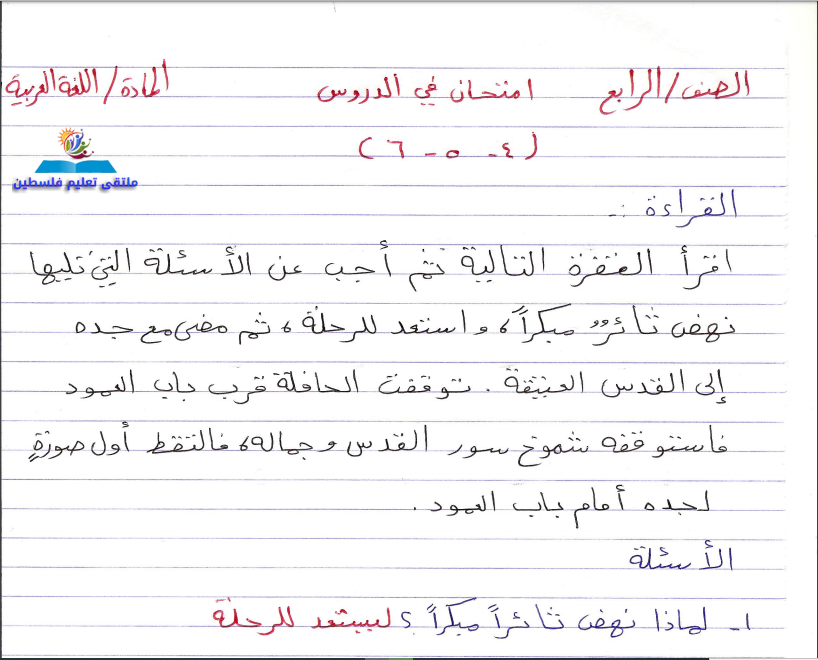 الصف/الرابع امتحان في الدروس المادة/اللغة العربية
(٤ - ٥ - ٦)
ملتقى تعليم فلسطين
القراءة :-
اقرأ الفقرة التالية ثم أجب عن الأسئلة التي تليها
نهض ثائرٌ مبكراً، واستعد للرحلة، ثم مضى مع جده
إلى القدس العتيقة. توقفت الحافلة قرب باب العمود
فاستوقفه شموخ سور القدس وجماله، فالتقط أول صورةٍ
لجده أمام باب العمود.
الأسئلة
١- لماذا نهض ثائراً مبكراً؟ ليستعد للرحلة